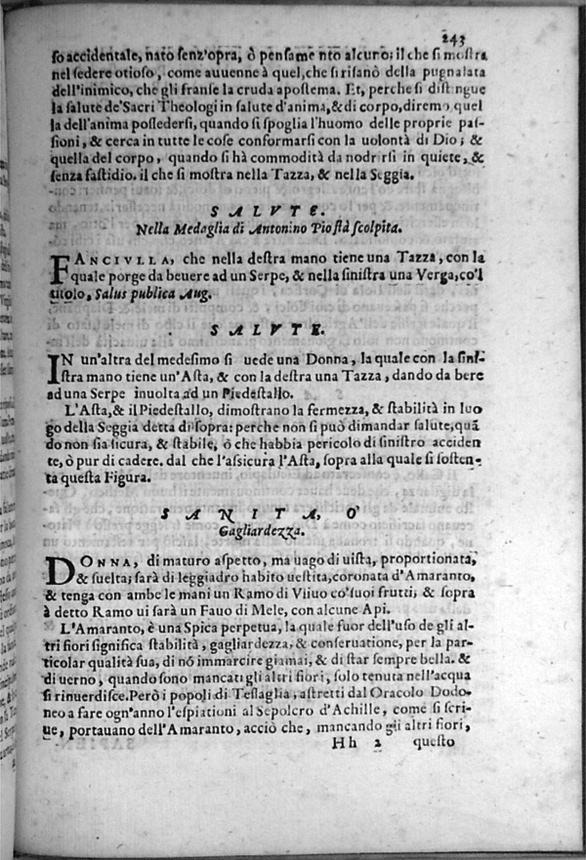 243
so accidentale, nato senz'opra, ò pensamento alcuro; il che si mostra
nel sedere otioso, come auuenne à quel, che si risanò della pugnalata
dell'inimico, che gli franse la cruda apostema. Et, perche si distingue
la salute de'Sacri Theologi in salute d'anima, & di corpo, diremo quel
la dell'anima possedersi, quando si spoglia l'huomo delle proprie pas-
sioni, & cerca in tutte le cose conformarsi con la uolontà di Dio; &
quella del corpo, quando si hà commodità da nodrirsi in quiete, &
senza fastidio. il che si mostra nella Tazza, & nella Seggia.
SALVTE.
Nella Medaglia di Antonino Pio stà scolpita.
FANCIVLLA, che nella destra mano tiene una Tazza, con la
quale porge da beuere ad un Serpe, & nella sinistra una Verga, co'l
titolo, Salus publica Aug.
SALVTE.
IN un'altra del medesimo si uede una Donna, la quale con la sini-
stra mano tiene un'Asta, & con la destra una Tazza, dando da bere
ad una Serpe inuolta ad un Piedestallo.
L'Asta, & il Piedestallo, dimostrano la fermezza, & stabilità in luo
go della Seggia detta di sopra: perche non si può dimandar salute, quā
do non sia sicura, & stabile, ò che habbia pericolo di sinistro acciden
te, ò pur di cadere. dal che l'assicura l'Asta, sopra alla quale si sosten-
ta questa Figura.
SANITA, O'
Gagliardezza.
DONNA, di maturo aspetto, ma uago di uista, proportionata,
& suelta; sarà di leggiadro habito uestita, coronata d'Amaranto,
& tenga con ambe le mani un Ramo di Vliuo co'suoi frutti, & sopra
à detto Ramo ui sarà un Fauo di Mele, con alcune Api.
L'Amaranto, è una Spica perpetua, la quale fuor dell'uso de gli al-
tri fiori significa stabilità, gagliardezza, & conseruatione, per la par-
ticolar qualità sua, di nō immarcire giamai, & di star sempre bella. &
di uerno, quando sono mancati gli altri fiori, solo tenuta nell'acqua
si rinuerdisce. Però i popoli di Tessaglia, astretti dal Oracolo Dodo-
neo a fare ogn'anno l'espiationi al Sepolcro d'Achille, come si scri-
ue, portauano dell'Amaranto, acciò che, mancando gli altri fiori,
Hh 2 questo